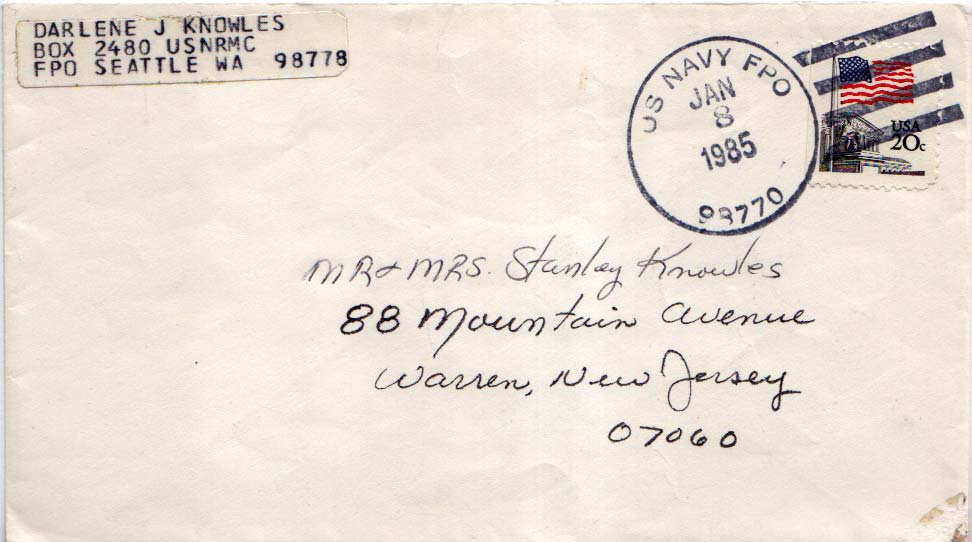 DARLENE J KNOWLES
BOX 2480 USNRMC
FPO SEATTLE WA 98778
US NAVY FPO
JAN
8
1985
98770
USA
20c
MR & MRS. Stanley Knowles
88 Mountain Avenue
Warren, New Jersey
07060